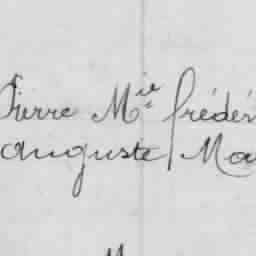 Pierre Mie frédér
auguste Ma